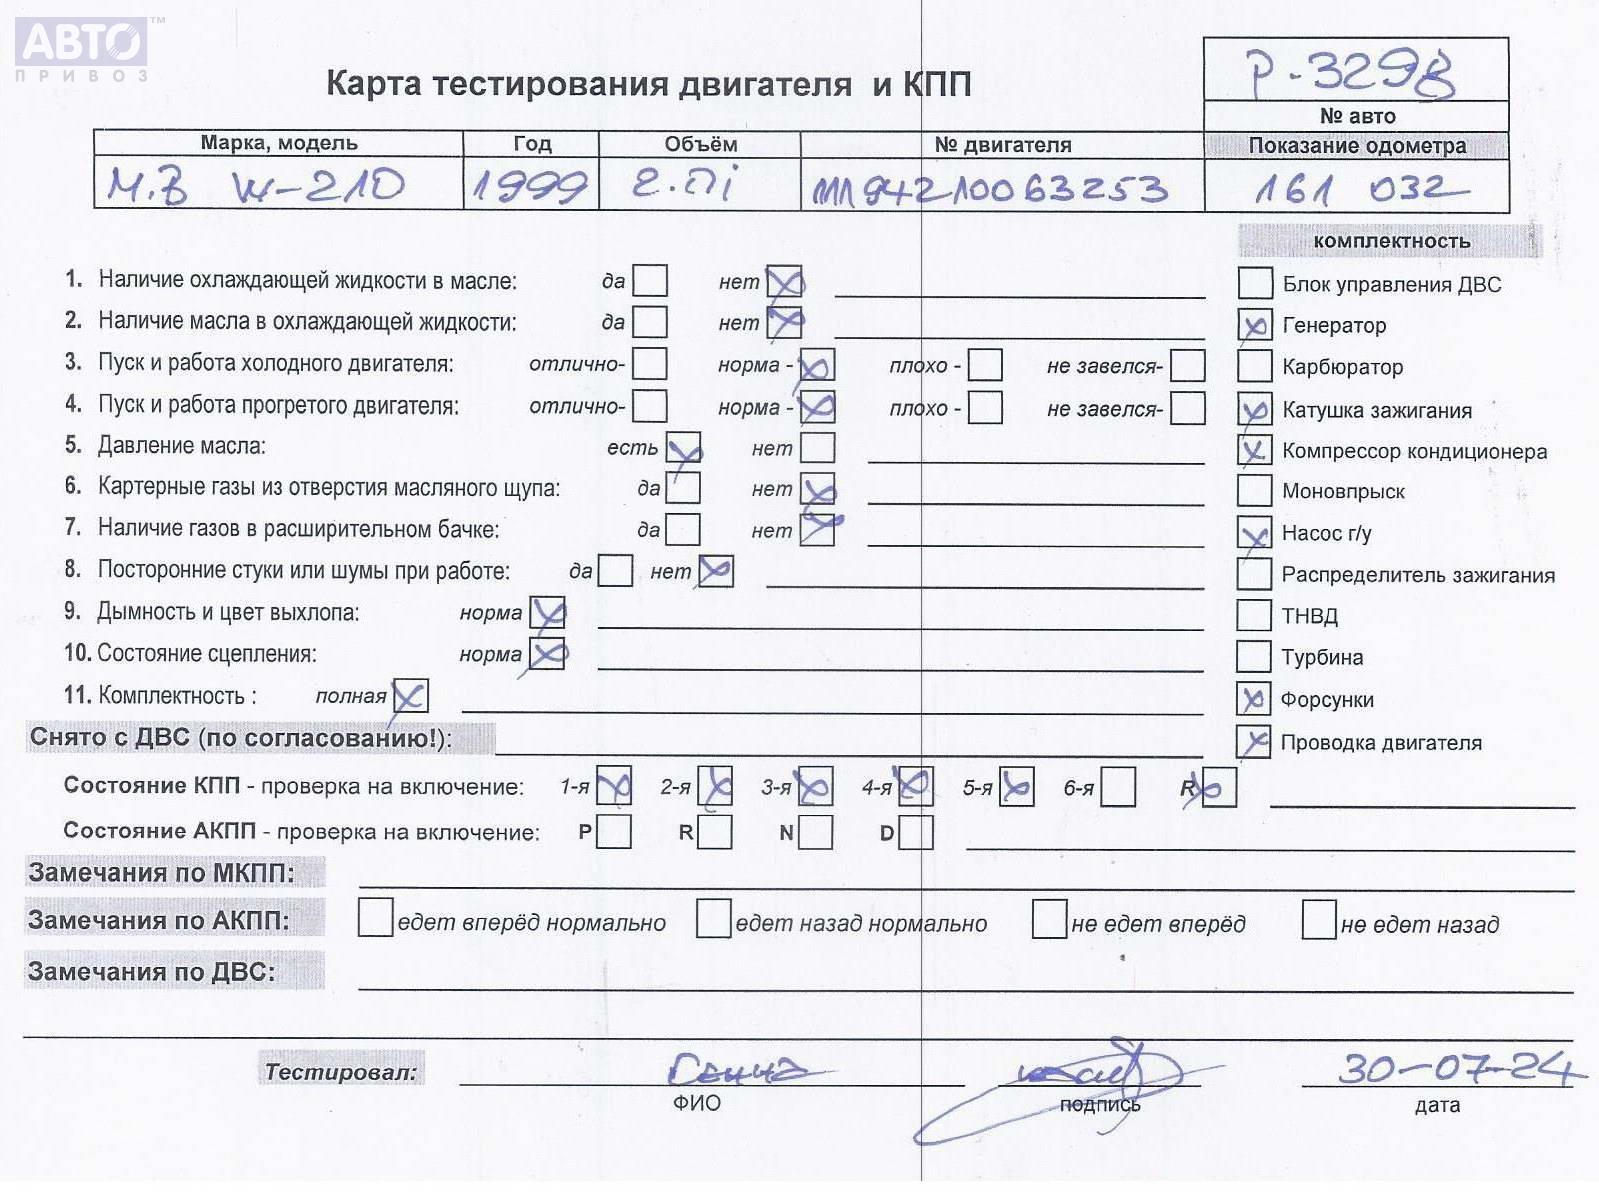 АВТО™
ПРИВОЗ
Карта тестирования двигателя и КПП
P-3298
№ авто
Марка, модель Год Объём № двигателя Показание одометра
M.B W-210 1999 2.0i 11194210063253 161 032
комплектность
1. Наличие охлаждающей жидкости в масле: да нет
Блок управления ДВС
2. Наличие масла в охлаждающей жидкости: да нет
Генератор
3. Пуск и работа холодного двигателя: отлично- норма - плохо - не завелся-
Карбюратор
4. Пуск и работа прогретого двигателя: отлично- норма - плохо - не завелся-
Катушка зажигания
5. Давление масла: есть нет
Компрессор кондиционера
6. Картерные газы из отверстия масляного щупа: да нет
Моновпрыск
7. Наличие газов в расширительном бачке: да нет
Насос г/у
8. Посторонние стуки или шумы при работе: да нет
Распределитель зажигания
9. Дымность и цвет выхлопа: норма
ТНВД
10. Состояние сцепления: норма
Турбина
11. Комплектность : полная
Форсунки
Снято с ДВС (по согласованию!):
Проводка двигателя
Состояние КПП - проверка на включение: 1-я 2-я 3-я 4-я 5-я 6-я R
Состояние АКПП - проверка на включение: P R N D
Замечания по МКПП:
Замечания по АКПП: едет вперёд нормально едет назад нормально не едет вперёд не едет назад
Замечания по ДВС:
Тестировал: Генна 30-07-24
ФИО подпись дата